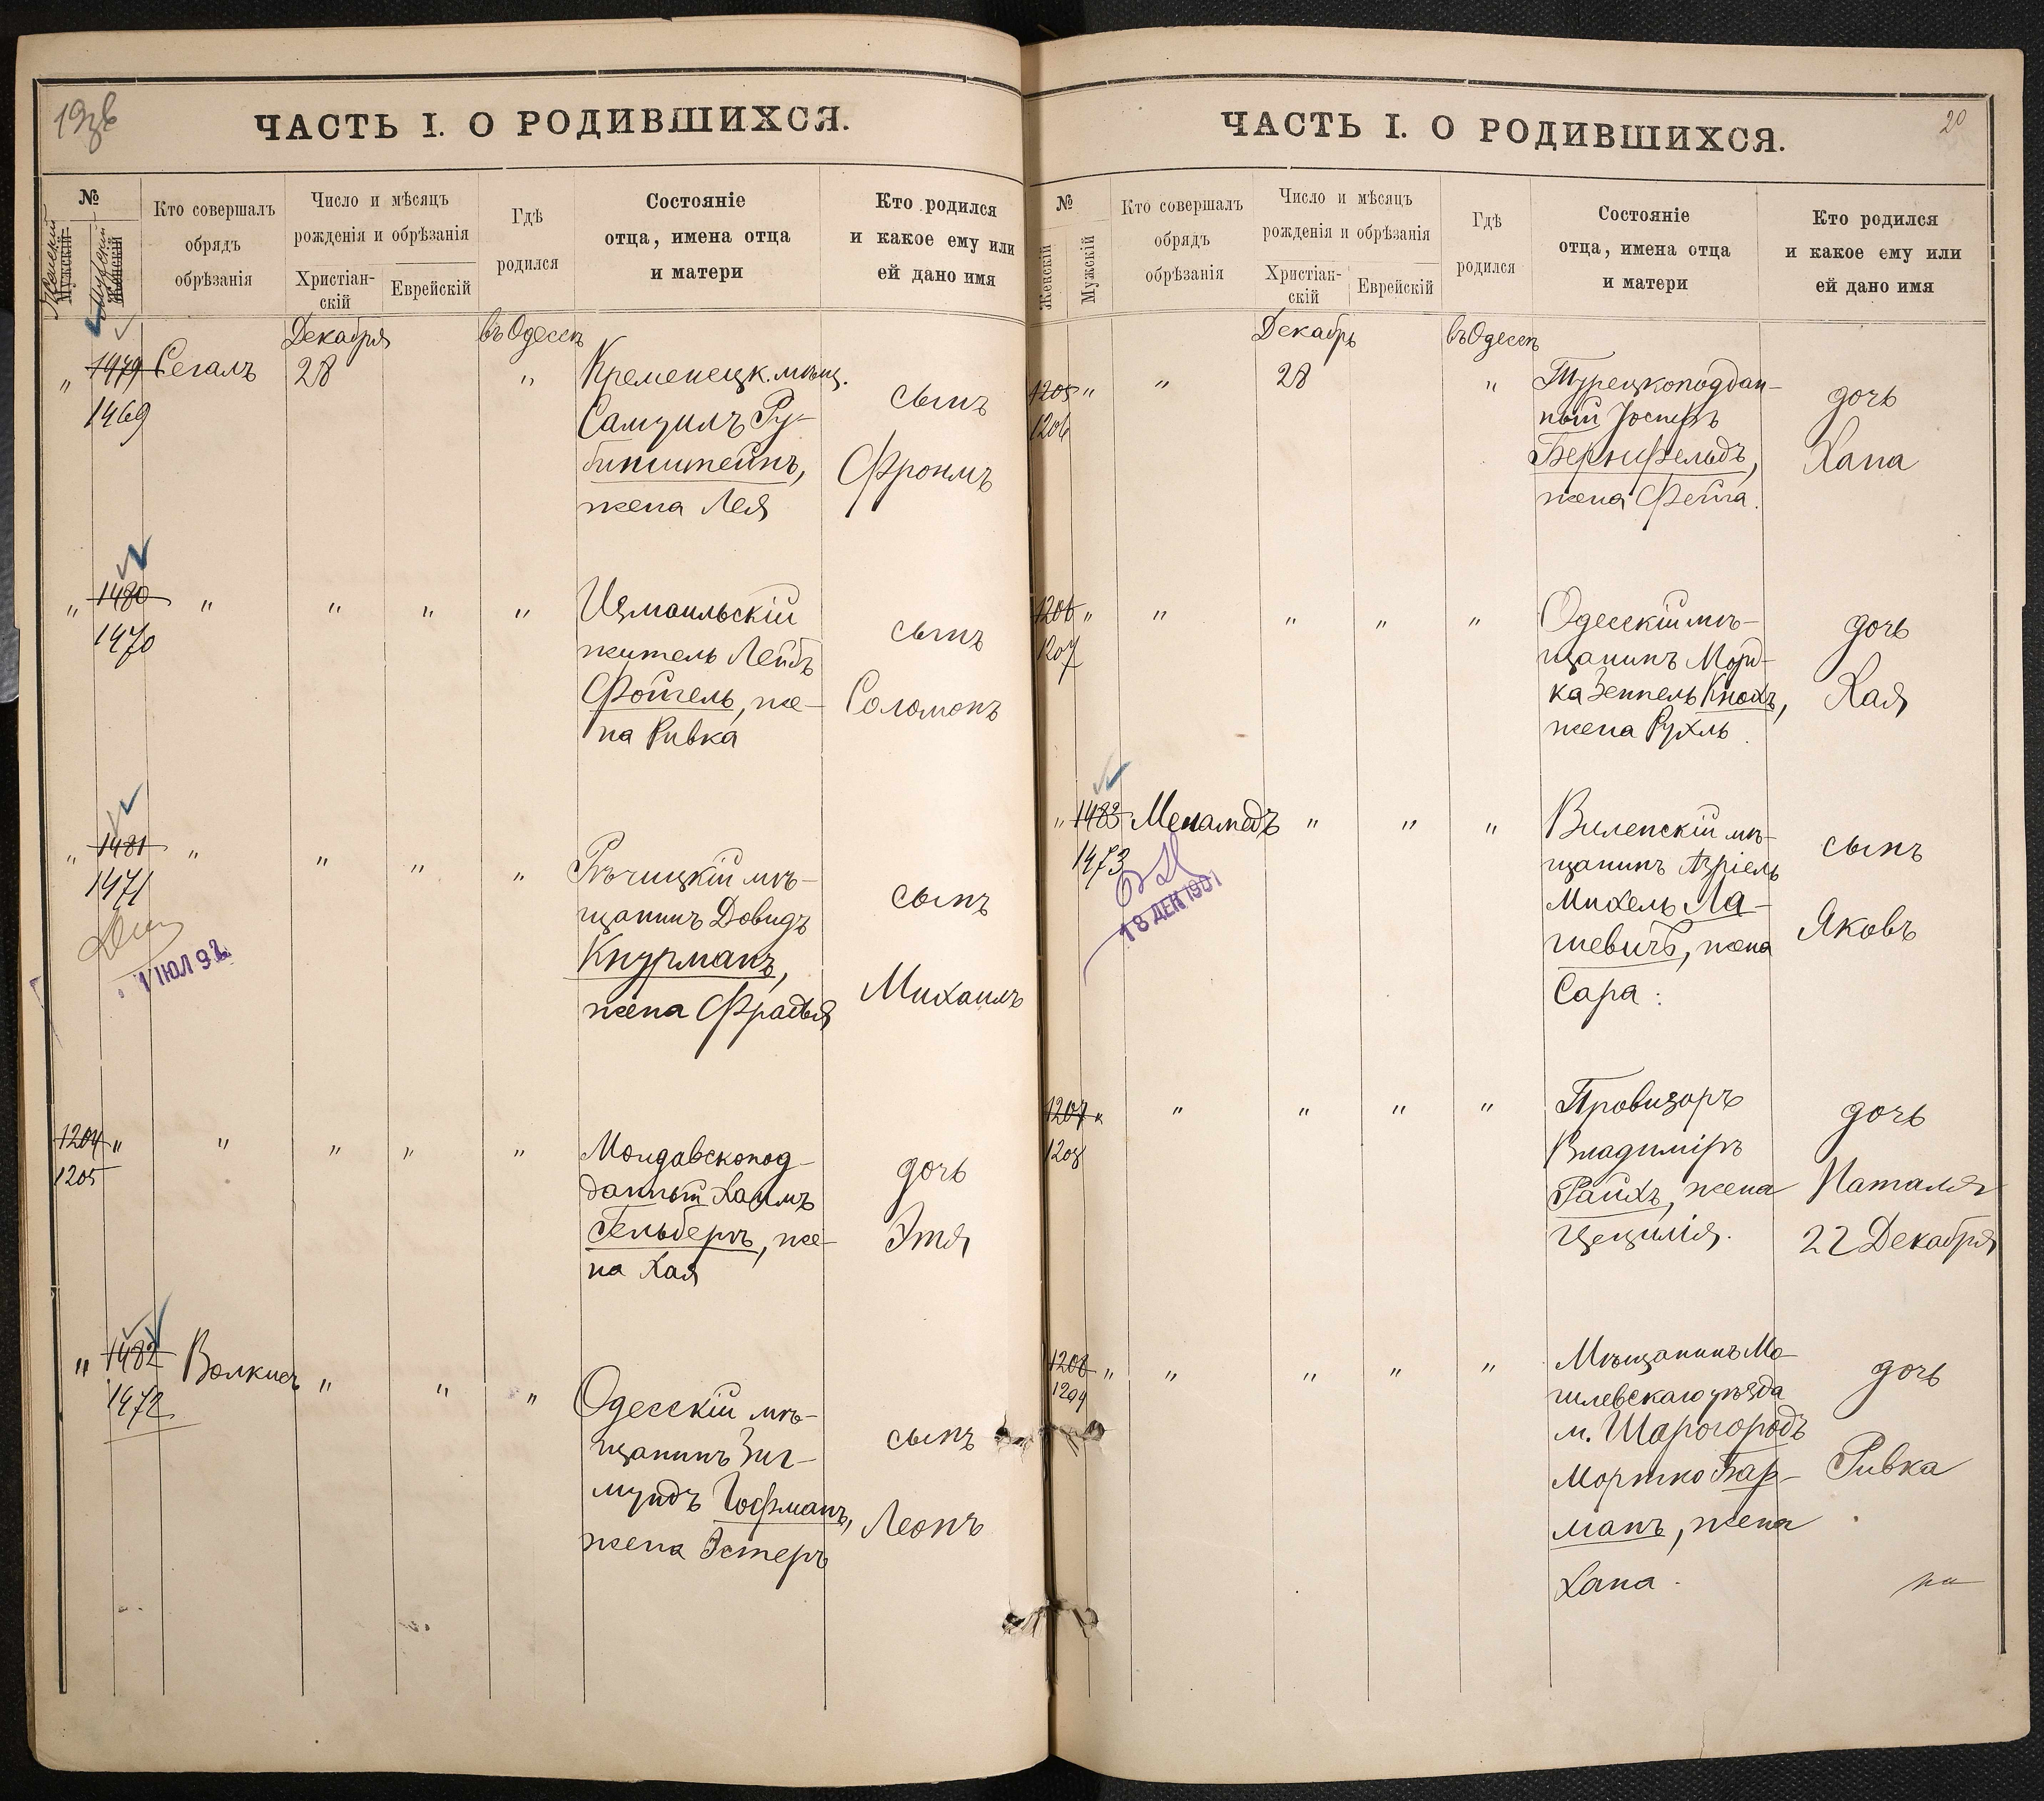 19об
ЧАСТЬ I. О РОДИВШИХСЯ.
№
Женскій
Мужскій
Мужской
Женскій
Кто совершалъ
обрядъ
обрѣзанія
Число и мѣсяцъ
рожденія и обрѣзанія
Христіан-
скій
Еврейскій
Гдѣ
родился
Состояніе
отца, имена отца
и матери
Кто родился
и какое ему или
ей дано имя
Декабря
въ Одессѣ
" 1479 Сегалъ 28 "
1469
Кременецк. мѣщ.
Самуилъ Ру-
бинштейнъ,
жена Лея
сынъ
Фроимъ
" 1480 " " " "
1470
Измаильскій
житель Лейбъ
Фойгель, же-
на Ривка
сынъ
Соломонъ
" 1481 " " " "
1471
1 ІЮЛ 92
Рѣчицкій мѣ-
щанинъ Довидъ
Кнурманъ,
жена Фрадья
сынъ
Михаилъ
1204 " " " " "
1205
Молдавскопод-
данный Хаимъ
Гельберъ, же-
на Хая
дочь
Этя
" 1482 Волкисъ " " "
1472
Одесскій мѣ-
щанинъ Зиг-
мундъ Гофманъ,
жена Эстеръ
сынъ
Леонъ
20
ЧАСТЬ I. О РОДИВШИХСЯ.
№
Женскій
Мужскій
Кто совершалъ
обрядъ
обрѣзанія
Число и мѣсяцъ
рожденія и обрѣзанія
Христіан-
скій
Еврейскій
Гдѣ
родился
Состояніе
отца, имена отца
и матери
Кто родился
и какое ему или
ей дано имя
Декабрь
въ Одессѣ
1205 " " 28 "
1206
Турецкоподдан-
ный Іосифъ
Бернфельдъ,
жена Фейга.
дочь
Хана
1206 " " " " "
1207
Одесскій мѣ-
щанинъ Морд-
ка Зейпель Кнохъ,
жена Рухль
дочь
Хая
" 1483 Меламедъ " " "
1473
18 ДЕК 1901
Виленскій мѣ-
щанинъ Азріель
Михель Ла-
шевичъ, жена
Сара.
сынъ
Яковъ
1207 " " " " "
1208
Провизоръ
Владиміръ
Райхъ, жена
Цецилія.
дочь
Наталія
22 Декабря
1208 " " " " "
1209
Мѣщанинъ Мо-
гилевскаго уѣзда
м. Шарогородъ
Мортко Бар-
манъ, жена
Хана.
дочь
Ривка